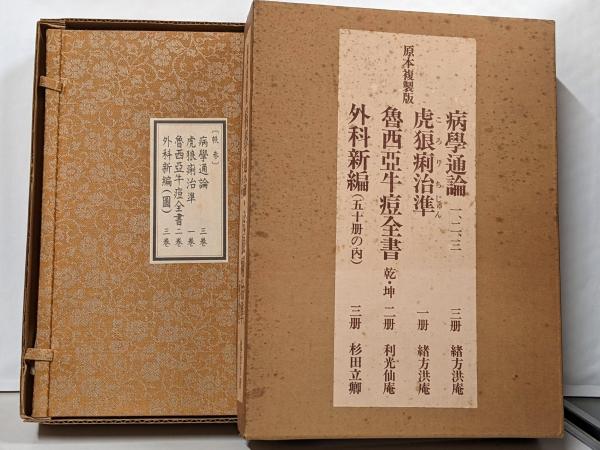 原本複製版
病學通論 一、二、三 三册 緒方洪庵
虎狼痢治準 一册 緒方洪庵
ころりちじゅん
魯西亞牛痘全書 乾・坤 二册 利光仙庵
外科新編(五十册の內) 三册 杉田立卿
病學通論 三巻
虎狼痢治準 一巻
魯西亞牛痘全書 二巻
外科新編(圖) 三巻